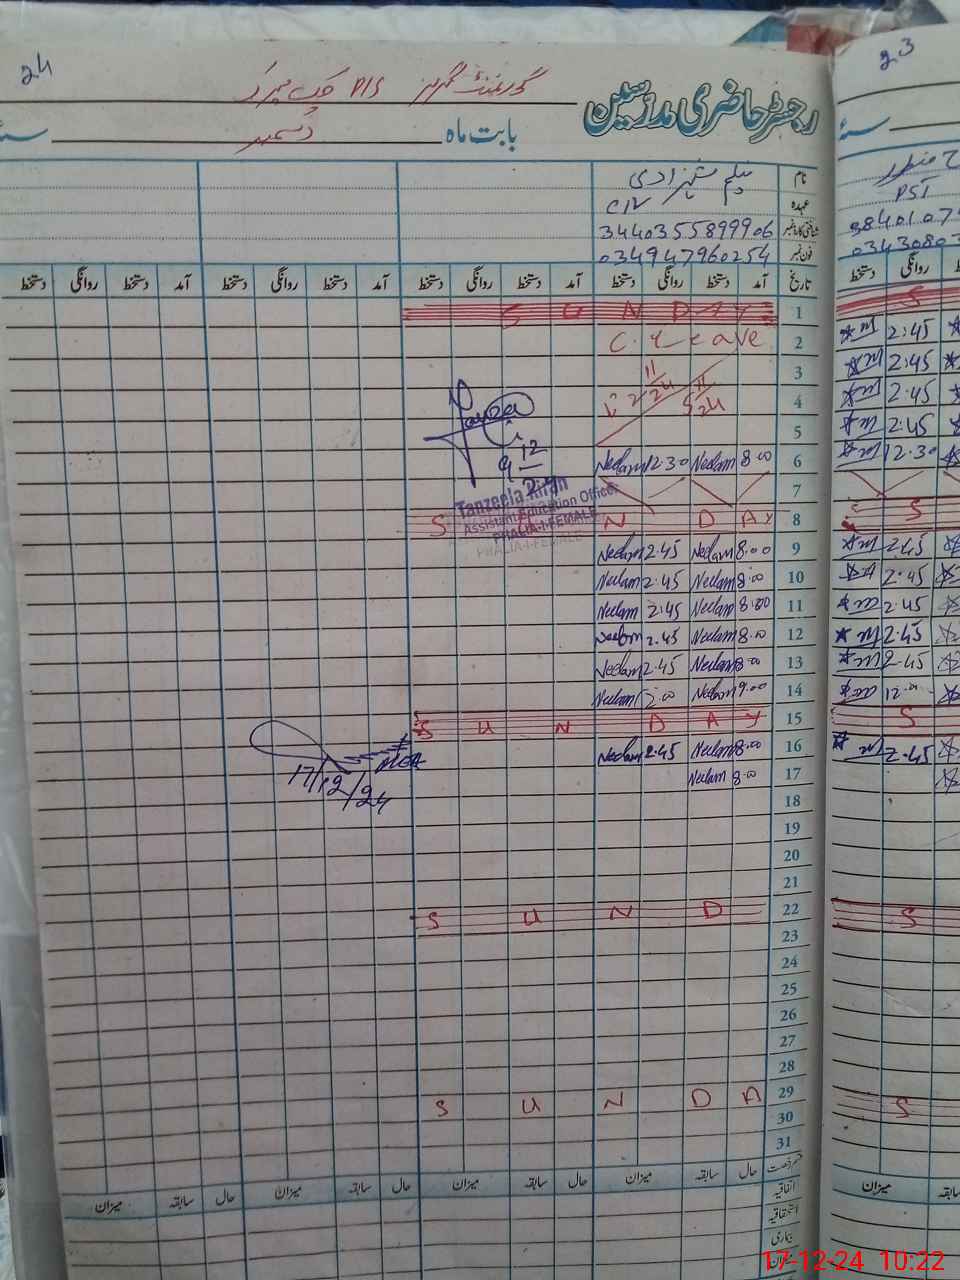 24
گورنمنٹ گرلز P/S چک
رجسٹر حاضری مدرسین
بابت ماہ دسمبر سنہ
نام نیلم شہزادی
عہدہ
شناختی کارڈ نمبر 3440355899906
فون نمبر 034947960254
تاریخ آمد دستخط روانگی دستخط آمد دستخط روانگی دستخط آمد دستخط روانگی دستخط آمد دستخط روانگی دستخط
1 SUNDAY
2 C. Leave
3
4
5
6 8:00 Neelam 12.30 Neelam
9/12
Tanzeela Riffat
Assistant Education Officer
PHALIA-I-FEMALE
7
8 SUNDAY
9 8:00 Neelam 2.45 Neelam
10 8:00 Neelam 2.45 Neelam
11 8:00 Neelam 2.45 Neelam
12 8:00 Neelam 2.45 Neelam
13 8:00 Neelam 2.45 Neelam
14 9:00 Neelam 12.00 Neelam
15 SUNDAY
16 8:00 Neelam 2.45 Neelam
17 8:00 Neelam
17/12/24
18
19
20
21
22 SUND
23
24
25
26
27
28
29 SUNDA
30
31
حال سابقہ میزان حال سابقہ میزان حال سابقہ میزان حال سابقہ میزان
اتفاقیہ
استحقاقیہ
بیماری
میزان
23
سنہ
PST
دستخط روانگی
S
2:45
2:45
2:45
2:45
12.30
S
2.45
2.45
2.45
2.45
2.45
12.00
S
2.45
S
S
میزان
17-12-24 10:22